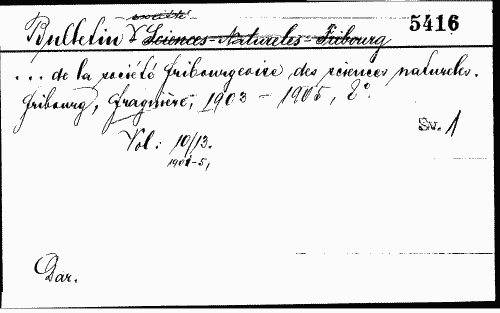 société
Bulletin d Sciences-Natureles-Fribourg 5416
... de la société fribourgeoise des sciences natureles.
Fribourg, Fragnière, 1903 - 1905, 8°.
Sv. 1
Vol: 10/13.
1901-5,
Dar.